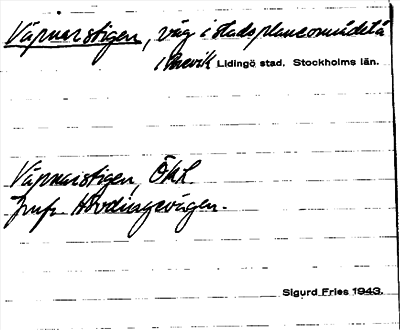 Väpnarstigen, väg i stadsplaneområdet å
i Brevik Lidingö stad. Stockholms län.
Väpnarstigen, ÖKL.
Jmf. Hövdingevägen.
Sigurd Fries 1943.